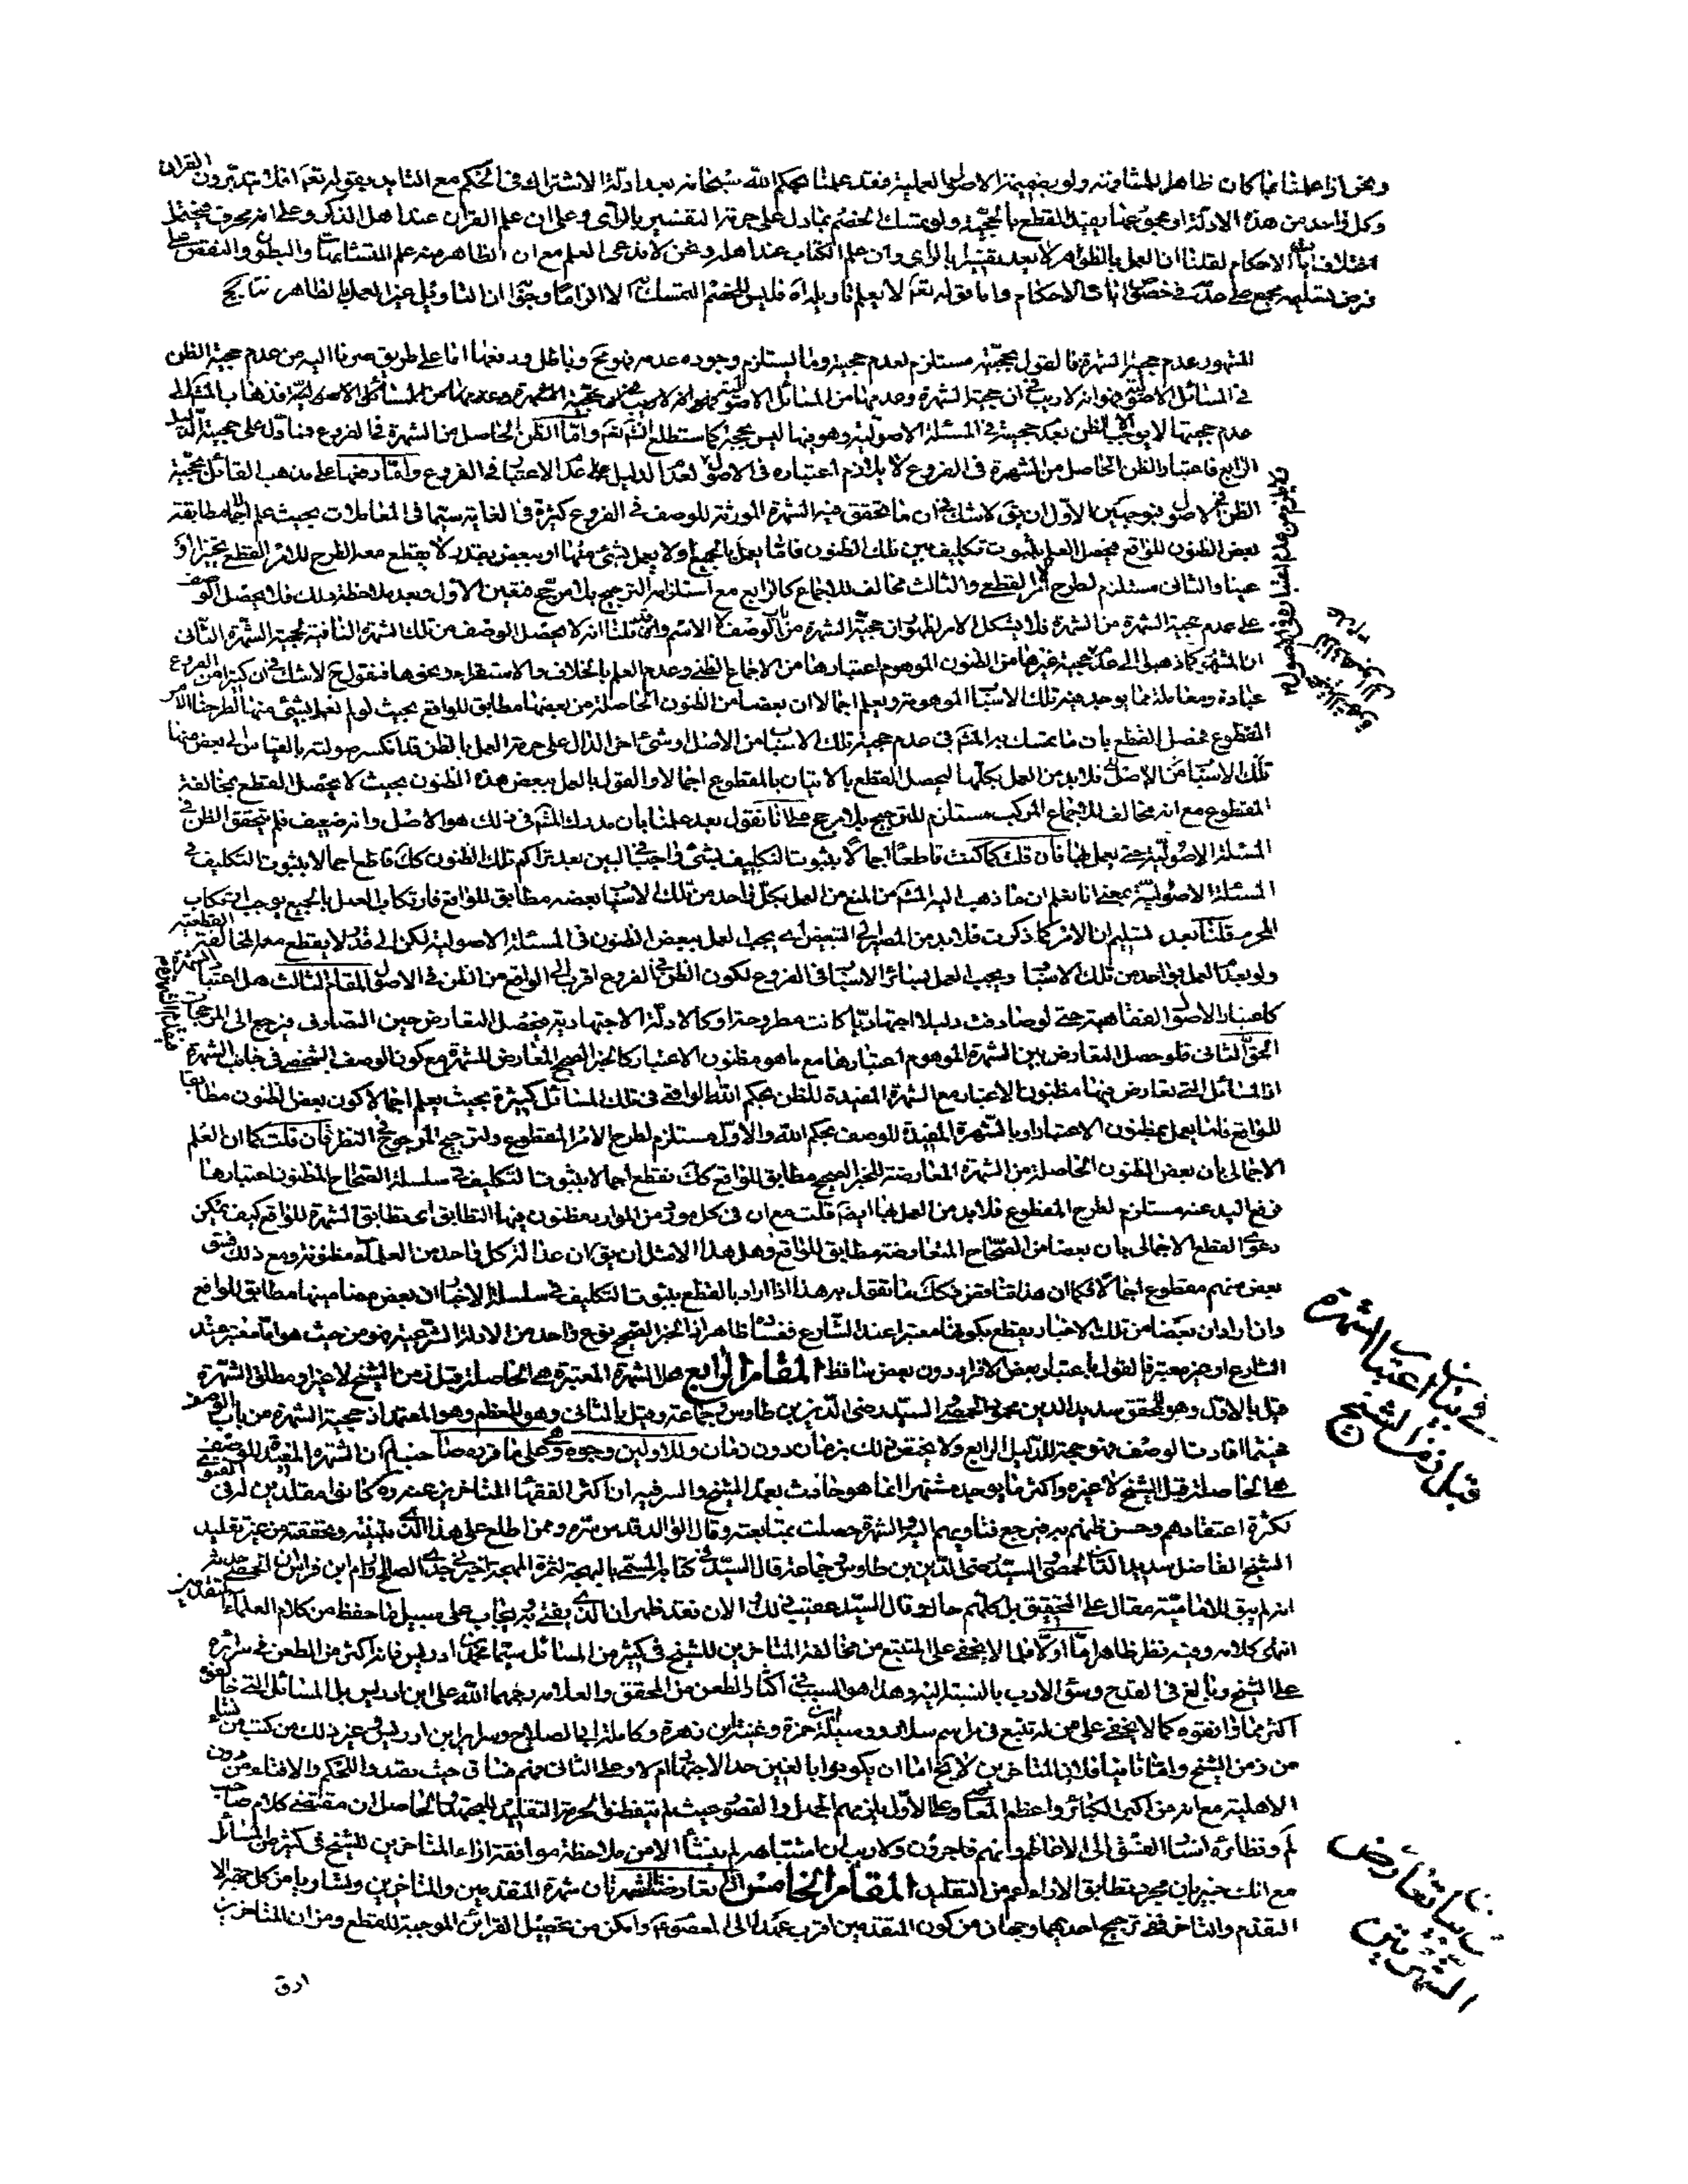 ونحن اذا علمنا بما كان ظاهرا للمشافهة ولو بضميمة الاصول العملية فقد علمنا بحكم الله سبحانه بعد ادلة الاشتراك فى الحكم مع التاييد بقوله تعم افلا يتدبرون القران
وكل واحد من هذه الادلة او مجموعها يفيد القطع بالحجية ولو تمسك الخصم بما دل على حرمة التفسير بالراى وعلى ان علم القران عند اهل الذكر وعلى انه محرف فيحتمل
الاحكام لقلنا ان العمل بالظواهر لا يعد تفسيرا بالراى وان علم الكتاب عند اهله ونحن لا ندعى العلم مع ان الظاهر منه علم المتشابهات والبطون والنقص على
فرض تسليمه مجمع على عدمه فى خصوص ايات الاحكام واما قوله تعم لا يعلم تاويله الا الله فليس للخصم التمسك به الا الزاما وجوابه ان التاويل غير العمل بالظاهر نتايج
المشهور عدم حجية الشهرة فالقول بحجيته مستلزم لعدم حجيته وما يستلزم وجوده عدمه فهو مح وباطل ودفعها اما على طريق صرنا اليه من عدم حجية الظن
فى المسائل الاصولية فهو انه لا ريب فى ان حجية الشهرة وعدمها من المسائل الاصولية فذهاب المشهور الى
عدم حجيتها لا يوجب الظن بعدم حجيته فى المسئلة الاصولية وهو فيها ليس بحجة كما ستطلع انشاء الله تعم واما الظن الحاصل من الشهرة فى الفروع فما دل على حجيته الدليل
الرابع فاعتبار الظن الحاصل من الشهرة فى الفروع لا يلازم اعتباره فى الاصول لعدم الدليل على عدم الاعتبار فى الفروع واما دفعها على مذهب القائل بحجية
الظن فى الاصول فبوجهين الاول ان يق لا شك فى ان ما تحقق فيه الشهرة المورثة للوصف فى الفروع كثيرة فى الغاية سيما فى المعاملات بحيث علم اجمالا مطابقة
بعض الظنون للواقع فيحصل العلم بثبوت تكليف بين تلك الظنون فاما يعمل بالجميع او لا يعمل بشئ منها او ببعض بقدر لا يقطع معه الطرح للامر القطعى تخييرا او
عينا والثانى مستلزم لطرح الامر القطعى والثالث مخالف للاجماع كالرابع مع استلزامه الترجيح بلا مرجح فتعين الاول وبعد ملاحظة ذلك فلا يحصل الوصف
على عدم حجية الشهرة من الشهرة فلا يشكل الامر لظهور ان حجية الشهرة من باب الوصف لا الاسم وقد قلنا انه لا يحصل الوصف من تلك الشهرة النافية لحجية الشهرة الثانى
ان المشهور كما ذهبوا الى عدم حجية غيرها من الظنون الموهوم اعتبارها من الاجماع الظنى وعدم العلم بالخلاف والاستقراء ونحوها فنقول ح لا شك فى ان كثيرا من الفروع
عبادة ومعاملة مما يوجد فيه تلك الاسباب الموهومة ويعلم اجمالا ان بعضا من الظنون الحاصلة من بعضها مطابق للواقع بحيث لو لم نعمل بشئ منها لطرحنا الامر
المقطوع فحصل القطع بان ما تمسك به المشهور فى عدم حجية تلك الاسباب من الاصل او شئ اخر الدال على حرمة العمل بالظن قد انكسر صولته بالقياس الى بعض منها
تلك الاسباب من الاصل فلا بد من العمل بكلها ليحصل القطع بالاتيان بالمقطوع اجمالا والقول بالعمل ببعض هذه الظنون بحيث لا يحصل القطع بمخالفة
المقطوع مع انه مخالف للاجماع المركب مستلزم للترجيح بلا مرجح نقول بعد علمنا بان مدرك المشهور فى ذلك هو الاصل وانه ضعيف فلم يتحقق الظن فى
المسئلة الاصولية حتى يعمل بها فان قلت كما كنت قاطعا اجمالا بثبوت التكليف بشئ واجب فى البين بعد تراكم تلك الظنون كك قاطع اجمالا بثبوت التكليف فى
المسئلة الاصولية بمعنى انا نعلم ان ما ذهب اليه المشهور من المنع من العمل بكل واحد من تلك الاسباب بعضه مطابق للواقع فارتكاب العمل بالجميع يوجب ارتكاب
المحرم قلنا بعد تسليم ان الامر كما ذكرت فلا بد من المصير الى التبعيض اى يجب العمل ببعض الظنون فى المسئلة الاصولية لكن الى قدر لا يقطع معه المخالفة القطعية
ولو بعدم العمل بواحد من تلك الاسباب ويجب العمل بسائر الاسباب فى الفروع لكون الظن فى الفروع اقرب الى الواقع من الظن فى الاصول المقام الثالث هل اعتبار الشهرة
كاعتبار الاصول الفقاهية حتى لو صادفت دليلا اجتهاديا كانت مطروحة او كالادلة الاجتهادية فيحصل التعارض حين التصادف فيرجع الى المرجحات
الحق الثانى فلو حصل التعارض بين الشهرة الموهوم اعتبارها مع ما هو مظنون الاعتبار كالخبر الصحيح المعارض للشهرة مع كون الوصف الشخصى فى جانب الشهرة فيقدم الشهرة
اذ المسائل التى تعارض فيها مظنون الاعتبار مع الشهرة المفيدة للظن بحكم الله الواقعى فى تلك المسائل كثيرة بحيث يعلم اجمالا كون بعض الظنون مطابقا
للواقع فاما يعمل بمظنون الاعتبار او بالشهرة المفيدة للوصف بحكم الله والاول مستلزم لطرح الامر المقطوع ولترجيح المرجوح فى النظر فان قلت كما ان العلم
الاجمالى بان بعض الظنون الحاصلة من الشهرة المعارضة للخبر الصحيح مطابق للواقع كك نقطع اجمالا بثبوت التكليف فى سلسلة الصحاح المظنون اعتبارها
فرفع اليد عنه مستلزم لطرح المقطوع فلا بد من العمل بها ايضا قلت مع ان فى كل مورد من الموارد مظنون فيها التطابق اى تطابق الشهرة للواقع كيف يمكن
دعوى القطع الاجمالى بان بعضا من الصحاح المتعارضة مطابق للواقع وهل هذا الا مثل ان يق ان عدالة كل واحد من العلماء مظنونة ومع ذلك فسق
بعض منهم مقطوع اجمالا فكما ان هذا تناقض فكك ما تقول به هذا اذا اراد بالقطع بثبوت التكليف فى سلسلة الاخبار ان بعض مضامينها مطابق للواقع
وان اراد ان بعضا من تلك الاخبار يقطع بكونها معتبرا عند الشارع ففساده ظاهر اذ الخبر الصحيح نوع واحد من الادلة الشرعية فهو من حيث هو اما معتبر عند
الشارع او غير معتبر فالقول باعتبار بعض الافراد دون بعض ساقط المقام الرابع هل الشهرة المعتبرة هى الحاصلة قبل زمن الشيخ لا غير او مطلق الشهرة
قيل بالاول وهو للمحقق سديد الدين محمود الحمصى والسيد رضى الدين بن طاوس وجماعة وقيل بالثانى وهو للمعظم وهو المعتمد اذ حجية الشهرة من باب الوصف
فحيثما افادت الوصف فهو حجة للدليل الرابع ولا يختص ذلك بزمان دون زمان وللاولين وجوه هى على ما قربه صاحب لم ان الشهرة المفيدة للوصف
هى الحاصلة قبل الشيخ لا غيره واكثر ما يوجد مشتهرا انما هو حادث بعد الشيخ والسر فيه ان اكثر الفقهاء المتاخرين عنه ره كانوا مقلدين له فى الفتوى
لكثرة اعتقادهم وحسن ظنهم به فيرجع فتاويهم اليه والشهرة حصلت بمتابعته وقال الوالد قدس سره وممن اطلع على هذا الذى بينته وتحققته من غير تقليد
الشيخ الفاضل سديد الدين محمود الحمصى والسيد رضى الدين بن طاوس وجماعة قال السيد فى كتابه المسمى بالبهجة لثمرة المهجة اخبرنى جدى الصالح ورام ابن فراس ان الحمصى حدثه
انه لم يبق للامامية مفت على التحقيق بل كلهم حاك وقال السيد عقيب ذلك والان فقد ظهر ان الذى يفتى به ويجاب على سبيل ما حفظ من كلام العلماء المتقدمين
انتهى كلامه وفيه نظر ظاهر اما اولا فلما لا يخفى على المتتبع من مخالفة المتاخرين للشيخ فى كثير من المسائل سيما محمد بن ادريس فانه اكثر من الطعن فى سرائره
على الشيخ وبالغ فى القدح وسوء الادب بالنسبة اليه وهذا هو السبب فى اكثار الطعن من المحقق والعلامه رحمهما الله على ابن ادريس بل المسائل التى خالفوه
اكثر مما وافقوه كما لا يخفى على من تتبع فى مراسم سلار ووسيلة ابن حمزة وغنية ابن زهرة وكامل ابى الصلاح وسرائر ابن ادريس وغير ذلك من كتب من نشاء
من زمن الشيخ واما ثانيا فلان المتاخرين لا يخ اما ان يكونوا بالغين حد الاجتهاد ام لا وعلى الثانى فهم فساق حيث تصدوا للحكم والافتاء من دون
الاهلية مع انه من اكبر الكبائر واعظم المعاصى وعلى الاول يلزمهم الجهل والقصور حيث لم يتفطنوا لحرمة التقليد للمجتهد فالحاصل ان مقتضى كلام صاحب
لم ونظائره انتساب الفسق الى الاعاظم وانهم فاجرون ولا ريب ان اشتباههم لم ينشأ الا من ملاحظة موافقة اراء المتاخرين للشيخ فى كثير من المسائل
مع انك خبير بان مجرد تطابق الاراء اعم من التقليد المقام الخامس اذا تعارضت الشهرتان شهرة المتقدمين والمتاخرين وتساويا من كل جهة الا
التقدم والتاخر ففى ترجيح احديهما وجهان من كون المتقدمين اقرب عهدا الى المعصوم وامكن من تحصيل القرائن الموجبة للقطع ومن ان المتاخرين
ادق
فى بيان اعتبار الشهرة
قبل زمن الشيخ
فى بيان تعارض
الشهرتين